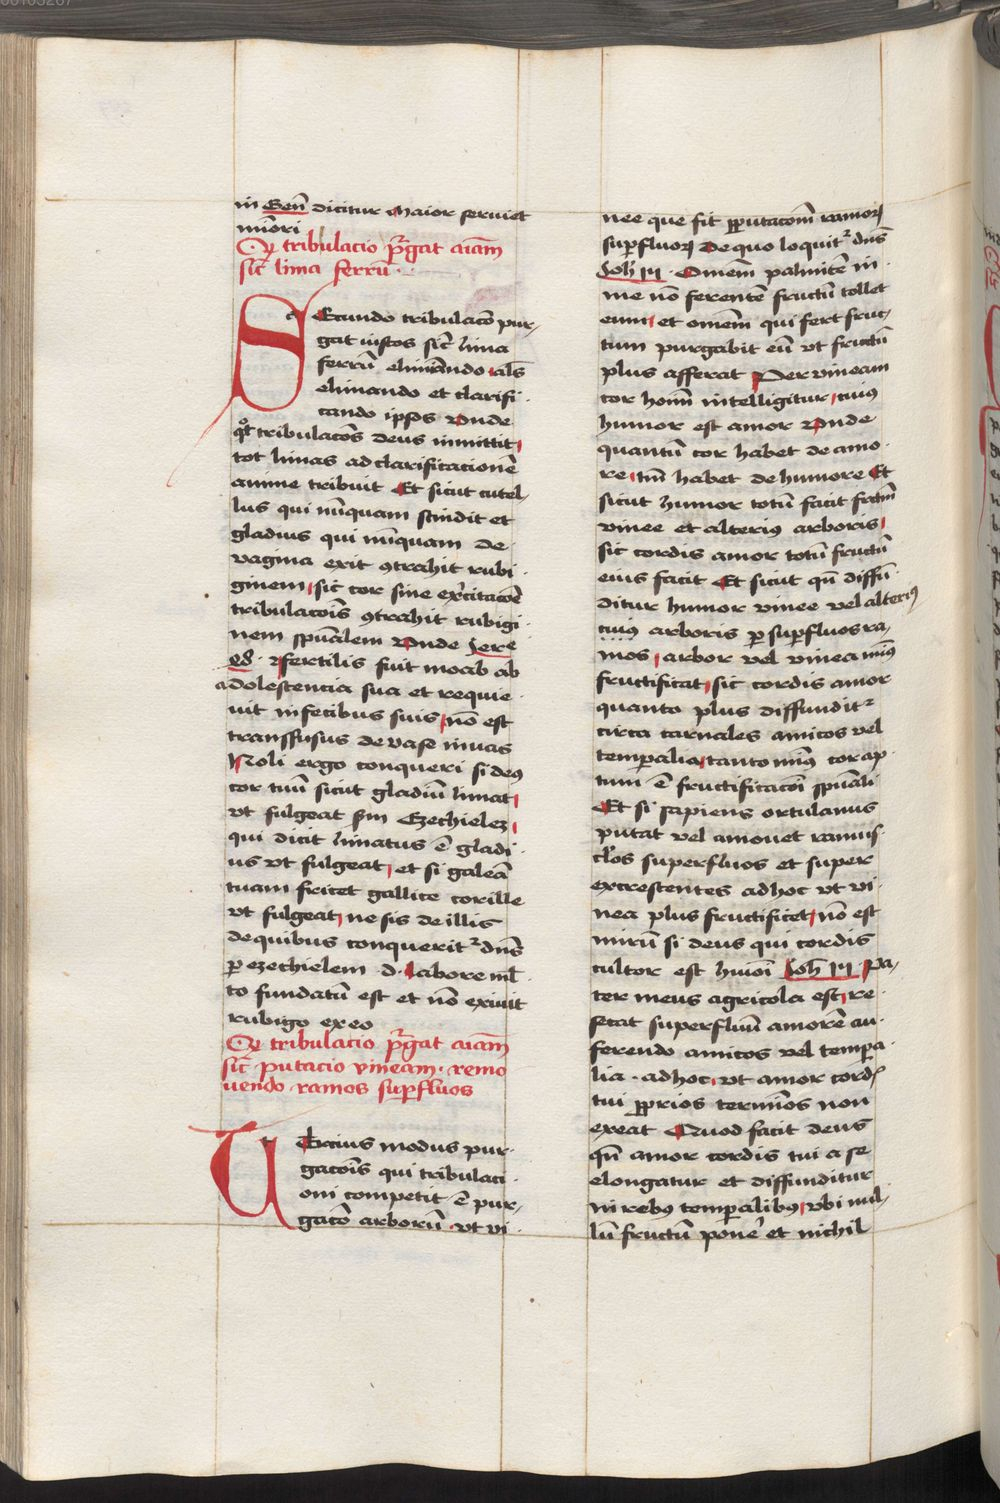 in Geñ dicitur Maior seruiet
mīori
Qͥ tribulacio p̄gat aīam
sic̄ lima ferrū
SEcundo tribulac̄o pur-
gat iustos sic̄ lima
ferrū elimando al̄s
elimando et clarifi
cando ipsos Vnde
qͦt tribulac̄oēs deus inmittit
tot limas ad clarificacionē
anime tribuit Et sicut cutel-
lus qui nūquam scindit et
gladius qui nūquam de
vagina exit ꝯtrahit rubi
ginem sic̄ cor sine exc̓itac̄oe
tribulac̄oīs ꝯtrahit rubigi
nem spūalem Vnde Jere
fertilis fuit moab ab
adolescencia sua et requie
uit in fecibus suis nō est
transfusus de vase in vas
Noli ergo conqueri si deꝰ
cor tuū sicut gladiū limat
vt fulgeat sm̄ Ezechielez
qui dicit limatus ē gladi
us vt fulgeat et si galeā
tuam fricet gallice corille
vt fulgeat ne sis de illis
de quibus conquerit᷑ dn̄s
ꝑ ezechielem d. Labore ml̄
to sudatū est et nō exiuit
rubigo ex eo
Qͥ tribulacio p̄gat aīam
sic̄ putacio vineam remo
uendo ramos suꝑfluos
TErcius modus pur-
gac̄oīs qui tribulaci
oni competit ē pur-
gac̄o arborū vt vi
nee que fit ꝑ putac̄om̄ ramoꝝ
suꝑfluoꝝ De quo loquit᷑ dn̄s
Joh̄ Omēm palmitē in
me nō ferentē fructū tollet
eum et omēm qui fert fruc-
tum purgabit eū vt fructū
plus afferat Per vineam
cor hoīs intelligitur cuiꝰ
humor est amor Vnde
quantū cor habet de amo
re tm̄ habet de humore Et
sicut humor totū facit fcm̄
vinee et alteriꝰ arboris
sic cordis amor totū fructū
eius facit Et sicut qn̄ diffū
ditur humor vinee vel alteriꝰ
cuiꝰ arboris ꝑ suꝑfluos ra-
mos arbor vel vinea minꝰ
fructificat sic cordis amor
quanto plus diffundit᷑
circa carnales amicos vel
temꝑalia tanto minꝰ cor ap
tum ē fructificac̄oi spūali
Et si sapiens ortulanus
putat vel amouet ramus
cl̓os superfluos et super
excrescentes ad hoc vt vi
nea plus fructificet nō est
mirū si deus qui cordis
cultor est huioī Joh̄ Pa-
ter meus agricola est re
secat superfluū amorē au
ferendo amicos vel temꝑa
lia ad hoc vt amor cordꝭ
tui ꝓprios terminos non
exeat Quod facit deus
qn̄ amor cordis tui a se
elongatur et diffunditur
in rebꝰ temꝑalibꝰ vbi nul-
lū fructū pone᷑ et nichil